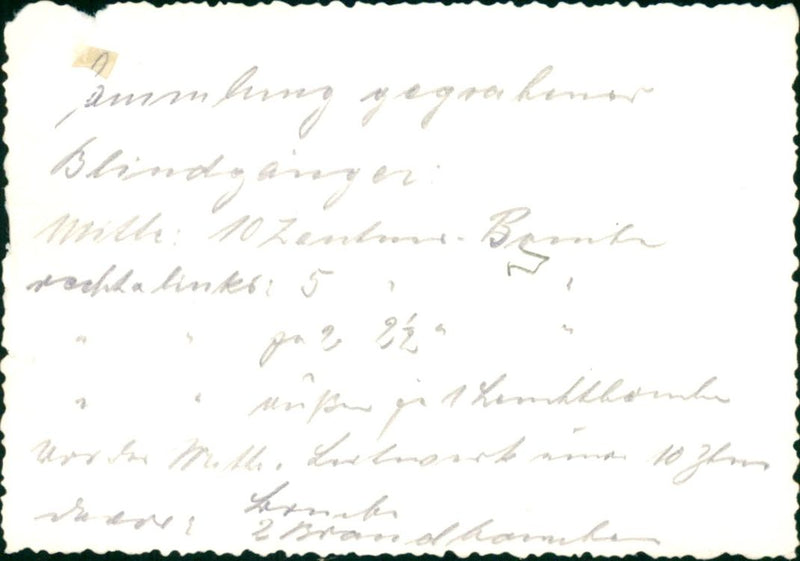 Sammlung gegrabener
Blindgänger:
Mitte: 10 Zentner-Bombe
rechts u links: 5 " "
" " je 2 2½ " "
" " außen je 1 Leuchtbombe
Vor der Mitte. Leitwerk einer 10 Ztner
Bombe
davor: 2 Brandbomben